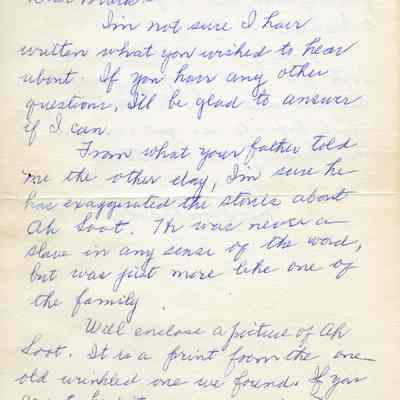 Dear Mark:
I'm not sure I have
written what you wished to hear
about. If you have any other
questions, I'll be glad to answer
if I can.
From what your father told
me the other day, I'm sure he
has exaggerated the stories about
Ah Soot. He was never a
slave in any sense of the word,
but was just more like one of
the family
Will enclose a picture of Ah
Soot. It is a print from the one
old wrinkled one we found. If you